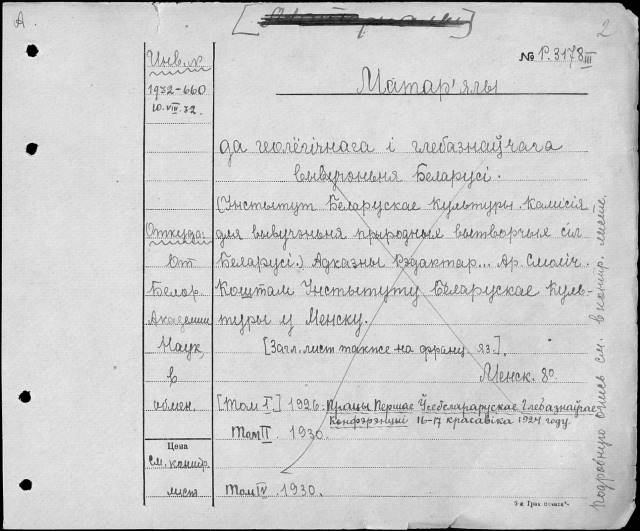 А
2
№ Р.3178 III
Инв. №
1932-660
10.VIII.32.
Матар'ялы
да геолёгічнага і глебазнаўчага
вывучэньня Беларусі.
(Інстытут Беларускае Культуры. Камісія
для вывучэньня природных вытворчых сіл
Беларусі.) Адказны Рэдактар... Ар. Смоліч.
Коштам Інстытуту Беларускае Куль-
туры у Менску.
[Загл. лист также на франц. яз.].
Менск. 8º
[Том I.] 1926. Працы Першае Ўсебеларускае Глебазнаўчае
Конфэрэнцыі 16-17 красавіка 1924 году.
Том II. 1930.
Том IV. 1930.
Откуда:
От
Белор.
Академии
Наук,
в
обмен.
Цена
см. контр.
лист
Подробную запись см. в контр. листе.